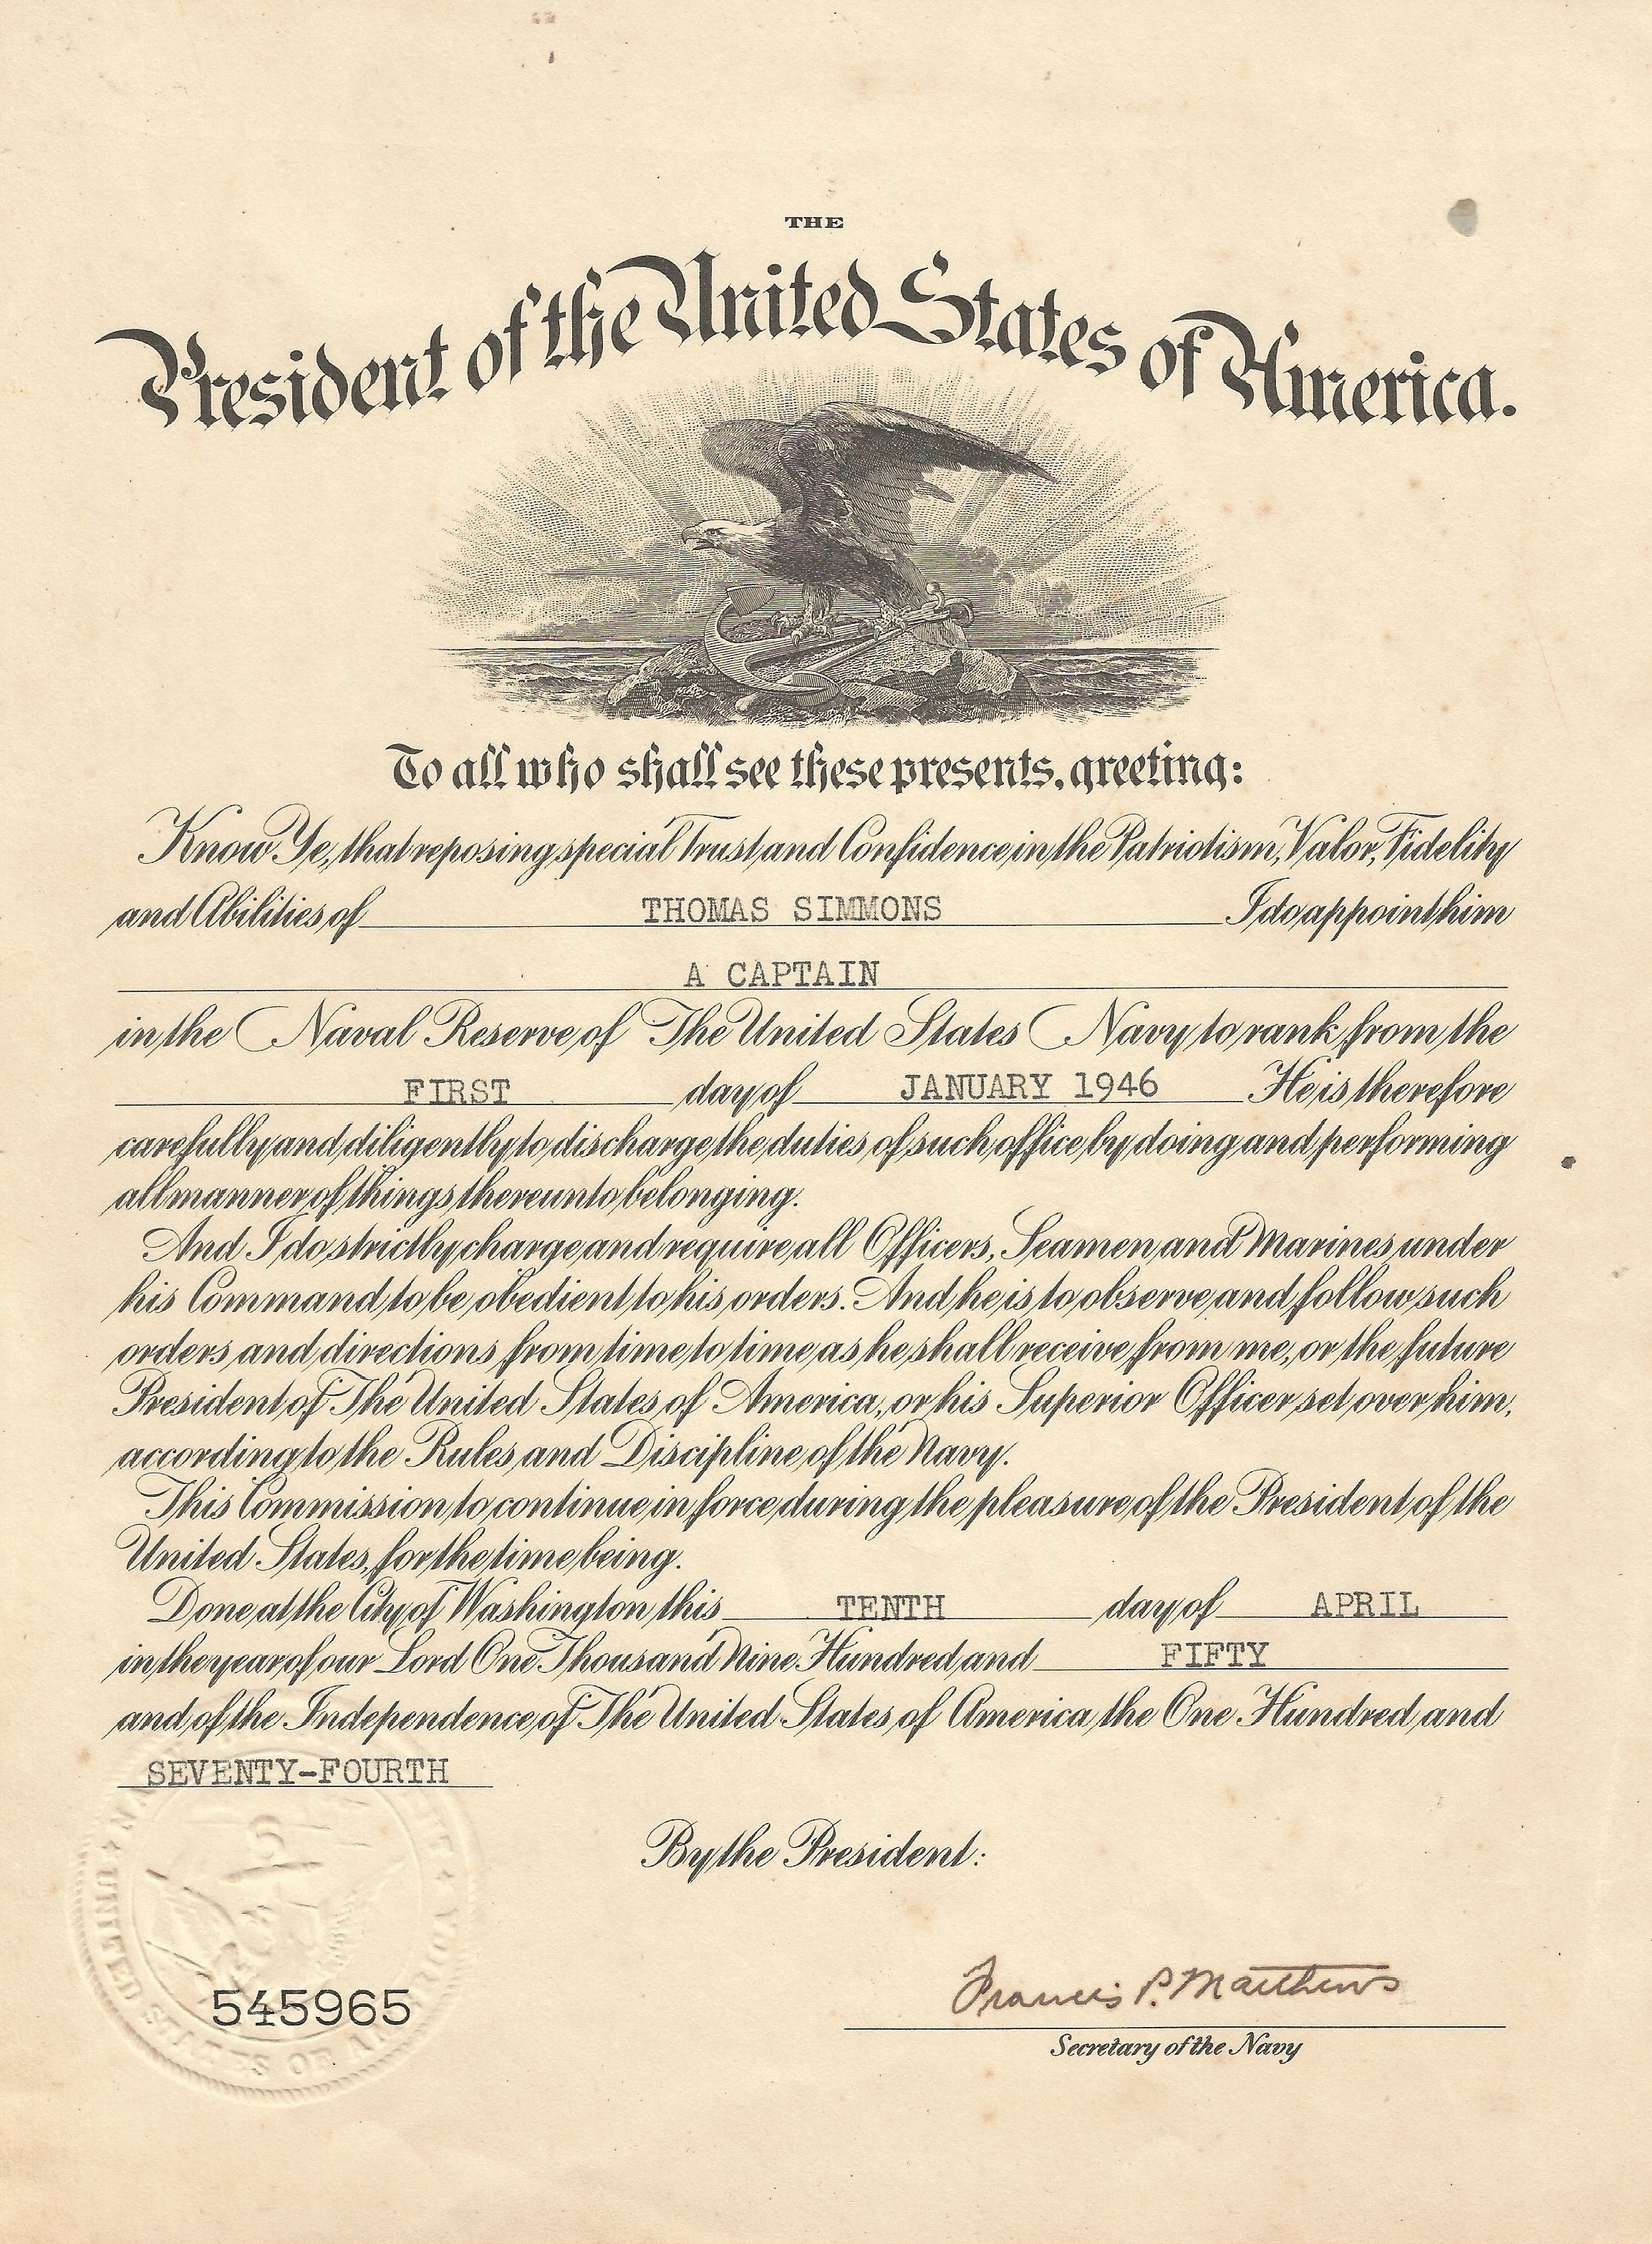 THE
President of the United States of America.
To all who shall see these presents, greeting:
Know Ye, that reposing special Trust and Confidence in the Patriotism, Valor, Fidelity
and Abilities of THOMAS SIMMONS I do appoint him
A CAPTAIN
in the Naval Reserve of The United States Navy to rank from the
FIRST day of JANUARY 1946 He is therefore
carefully and diligently to discharge the duties of such office by doing and performing
all manner of things thereunto belonging.
And I do strictly charge and require all Officers, Seamen and Marines under
his Command to be obedient to his orders. And he is to observe and follow such
orders and directions from time to time as he shall receive from me, or the future
President of The United States of America, or his Superior Officer set over him,
according to the Rules and Discipline of the Navy.
This Commission to continue in force during the pleasure of the President of the
United States, for the time being.
Done at the City of Washington this TENTH day of APRIL
in the year of our Lord One Thousand Nine Hundred and FIFTY
and of the Independence of The United States of America the One Hundred and
SEVENTY-FOURTH
By the President:
Francis P. Matthews
Secretary of the Navy
545965
UNITED STATES OF AMERICA